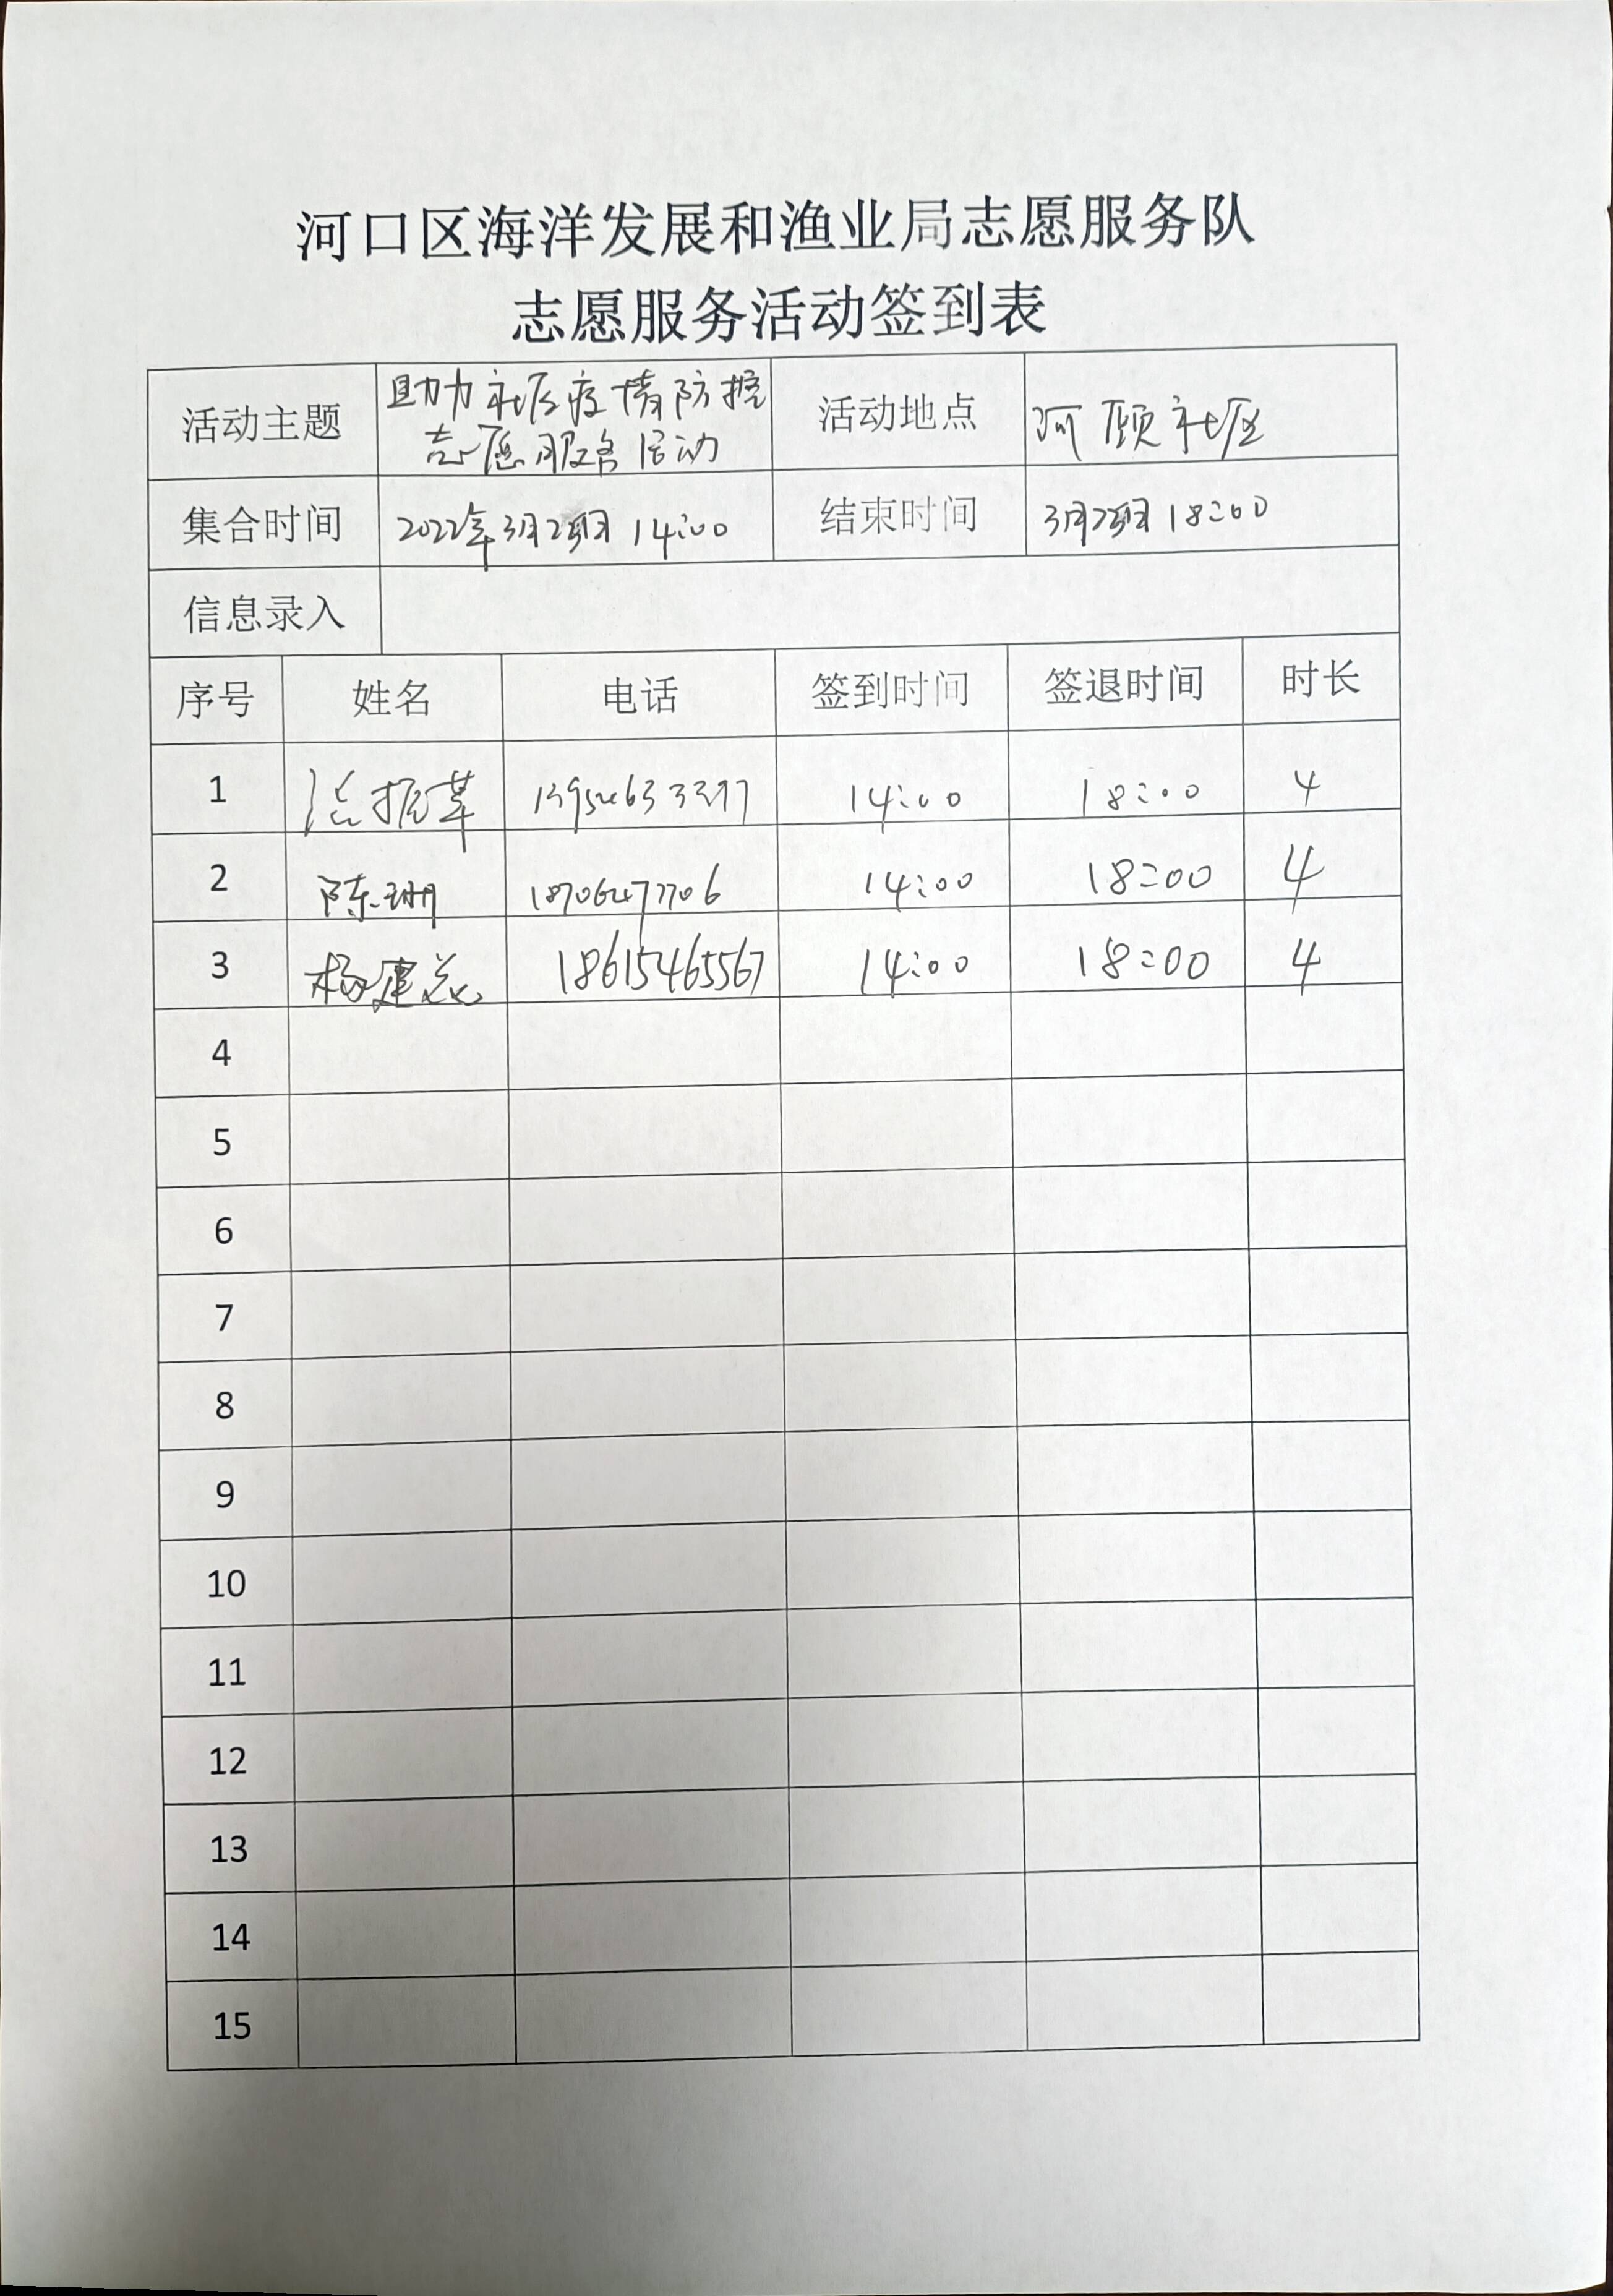 河口区海洋发展和渔业局志愿服务队
志愿服务活动签到表
活动主题 助力社区疫情防控 活动地点 河颐社区
志愿服务活动
集合时间 2022年3月2日 14:00 结束时间 3月2日 18:00
信息录入
序号 姓名 电话 签到时间 签退时间 时长
1 14:00 18:00 4
2 陈珊 14:00 18:00 4
3 杨建 18615465567 14:00 18:00 4
4
5
6
7
8
9
10
11
12
13
14
15